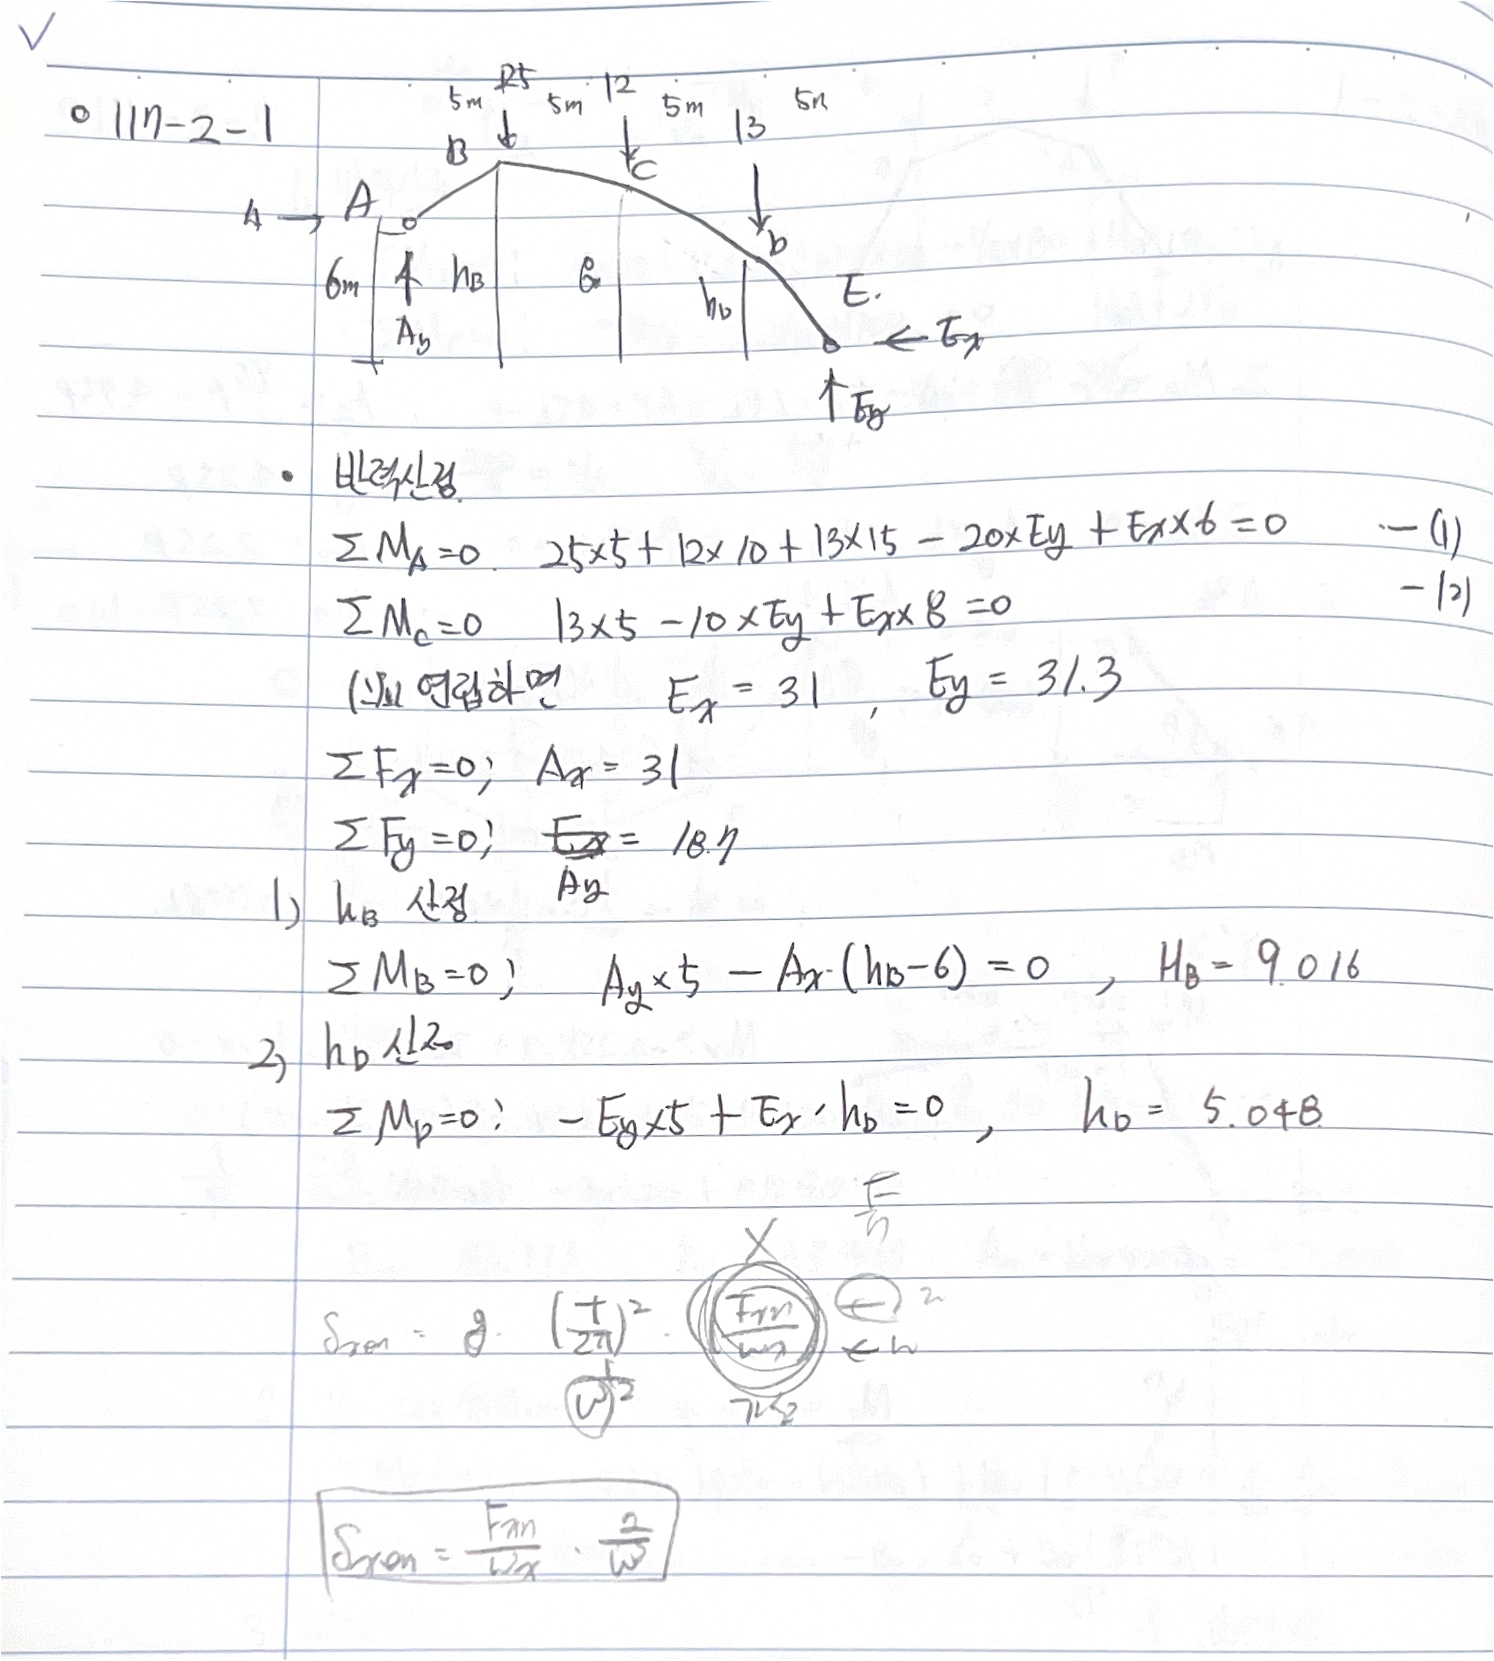 117-2-1
5m 25 5m 12 5m 13 5m
B C
A → A
6m hB 8 hD D E.
Ay ← Ex
↑ Ey
• 반력산정
ΣMA=0. 25×5 + 12×10 + 13×15 - 20×Ey + Ex×6 = 0 -(1)
ΣMC=0 13×5 - 10×Ey + Ex×8 = 0 -(2)
연립하면 Ex = 31 , Ey = 31.3
ΣFx=0; Ax = 31
ΣFy=0; = 18.7
Ay
1) hB 산정
ΣMB=0; Ay×5 - Ax·(hB-6) = 0 , HB = 9.016
2) hD 산정
ΣMD=0: -Ey×5 + Ex·hD = 0 , hD = 5.048
F
X
Sxen = g. (t/2π)² . Fxn/wx ← w
w²
Sxen = Fxn/wx · g/w²